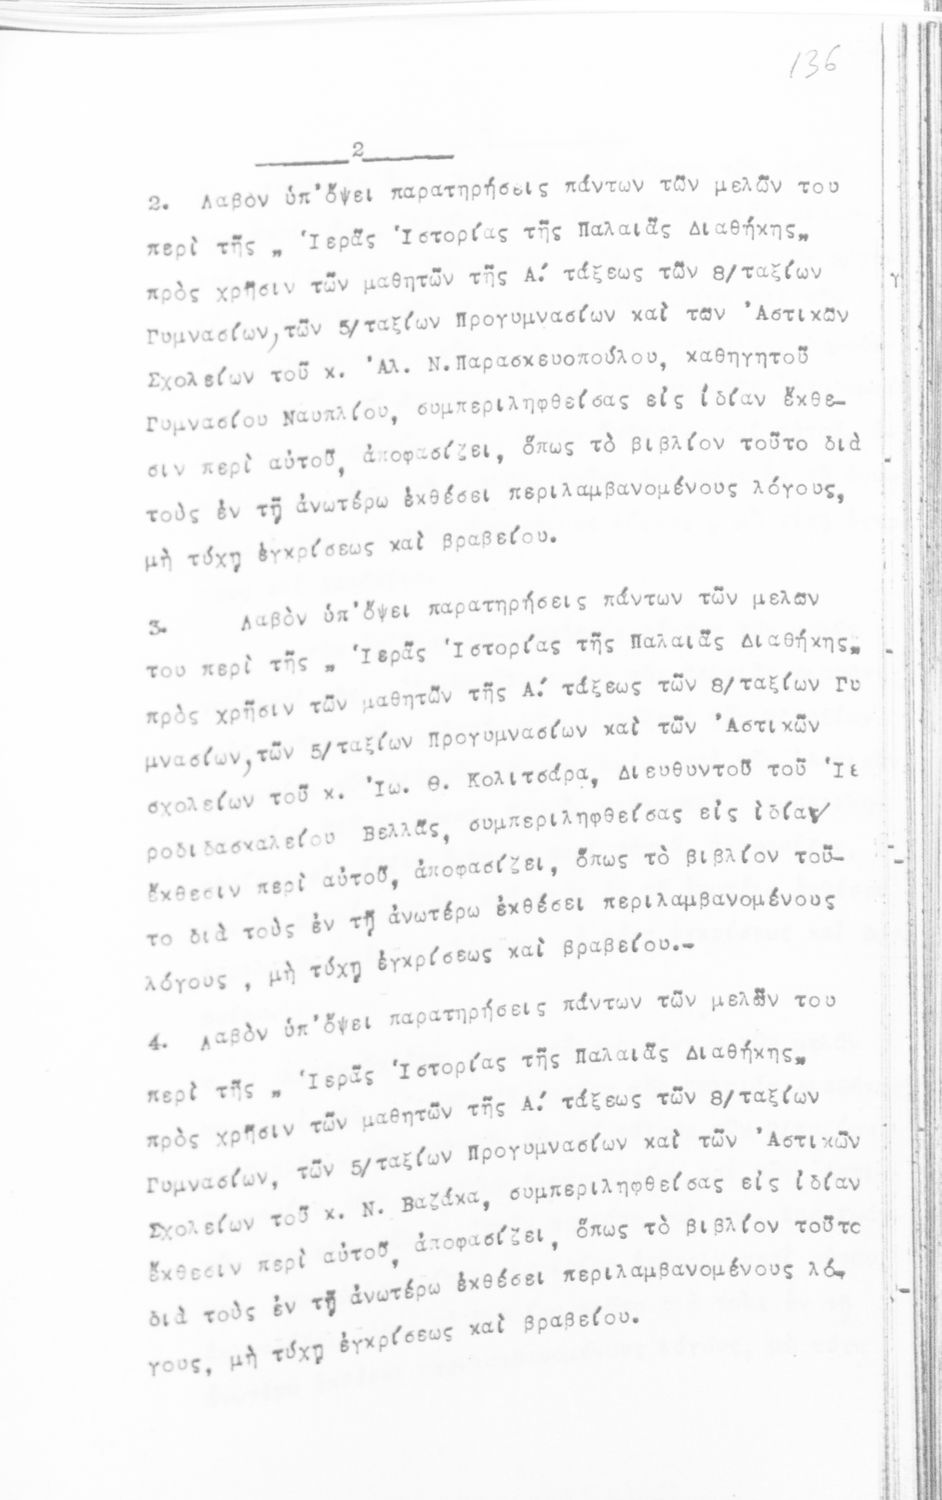 136
2
2. Λαβὸν ὑπ'ὄψει παρατηρήσεις πάντων τῶν μελῶν του
περὶ τῆς „ Ἱερᾶς Ἱστορίας τῆς Παλαιᾶς Διαθήκης„
πρὸς χρῆσιν τῶν μαθητῶν τῆς Α.' τάξεως τῶν 8/ταξίων
Γυμνασίων,τῶν 5/ταξίων Προγυμνασίων καὶ των Ἀστικῶν
Σχολείων τοῦ κ. Ἀλ. Ν.Παρασκευοπούλου, καθηγητοῦ
Γυμνασίου Ναυπλίου, συμπεριληφθείσας εἰς ἰδίαν ἔκθε-
σιν περὶ αὐτοῦ, ἀποφασίζει, ὅπως τὸ βιβλίον τοῦτο διὰ
τοὺς ἐν τῇ ἀνωτέρω ἐκθέσει περιλαμβανομένους λόγους,
μὴ τύχῃ ἐγκρίσεως καὶ βραβείου.
3. Λαβὸν ὑπ'ὄψει παρατηρήσεις πάντων τῶν μελων
του περὶ τῆς „ Ἱερᾶς Ἱστορίας τῆς Παλαιᾶς Διαθήκης„
πρὸς χρῆσιν τῶν μαθητῶν τῆς Α.' τάξεως τῶν 8/ταξίων Γυ
μνασίων,τῶν 5/ταξίων Προγυμνασίων καὶ τῶν Ἀστικῶν
σχολείων τοῦ κ. Ἰω. Θ. Κολιτσάρα, Διευθυντοῦ τοῦ Ἱε
ροδιδασκαλείου Βελλᾶς, συμπεριληφθείσας εἰς ἰδίαν
ἔκθεσιν περὶ αὐτοῦ, ἀποφασίζει, ὅπως τὸ βιβλίον τοῦ-
το διὰ τοὺς ἐν τῇ ἀνωτέρω ἐκθέσει περιλαμβανομένους
λόγους , μὴ τύχῃ ἐγκρίσεως καὶ βραβείου.-
4. Λαβὸν ὑπ'ὄψει παρατηρήσεις πάντων τῶν μελῶν του
περὶ τῆς „ Ἱερᾶς Ἱστορίας τῆς Παλαιᾶς Διαθήκης„
πρὸς χρῆσιν τῶν μαθητῶν τῆς Α.' τάξεως τῶν 8/ταξίων
Γυμνασίων, τῶν 5/ταξίων Προγυμνασίων καὶ τῶν Ἀστικῶν
Σχολείων τοῦ κ. Ν. Βαζάκα, συμπεριληφθείσας εἰς ἰδίαν
ἔκθεσιν περὶ αὐτοῦ, ἀποφασίζει, ὅπως τὸ βιβλίον τοῦτο
διὰ τοὺς ἐν τῇ ἀνωτέρω ἐκθέσει περιλαμβανομένους λό-
γους, μὴ τύχῃ ἐγκρίσεως καὶ βραβείου.